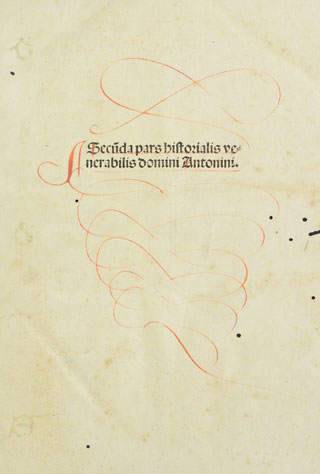 Secūda pars historialis ve-
nerabilis domini Antonini.